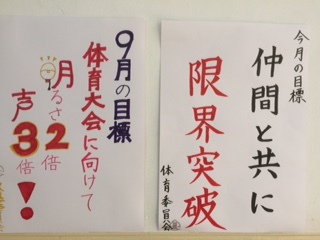 今月の目標
仲間と共に
限界突破
体育委員会
9月の目標
体育大会に向けて
明るさ2倍
声3倍!